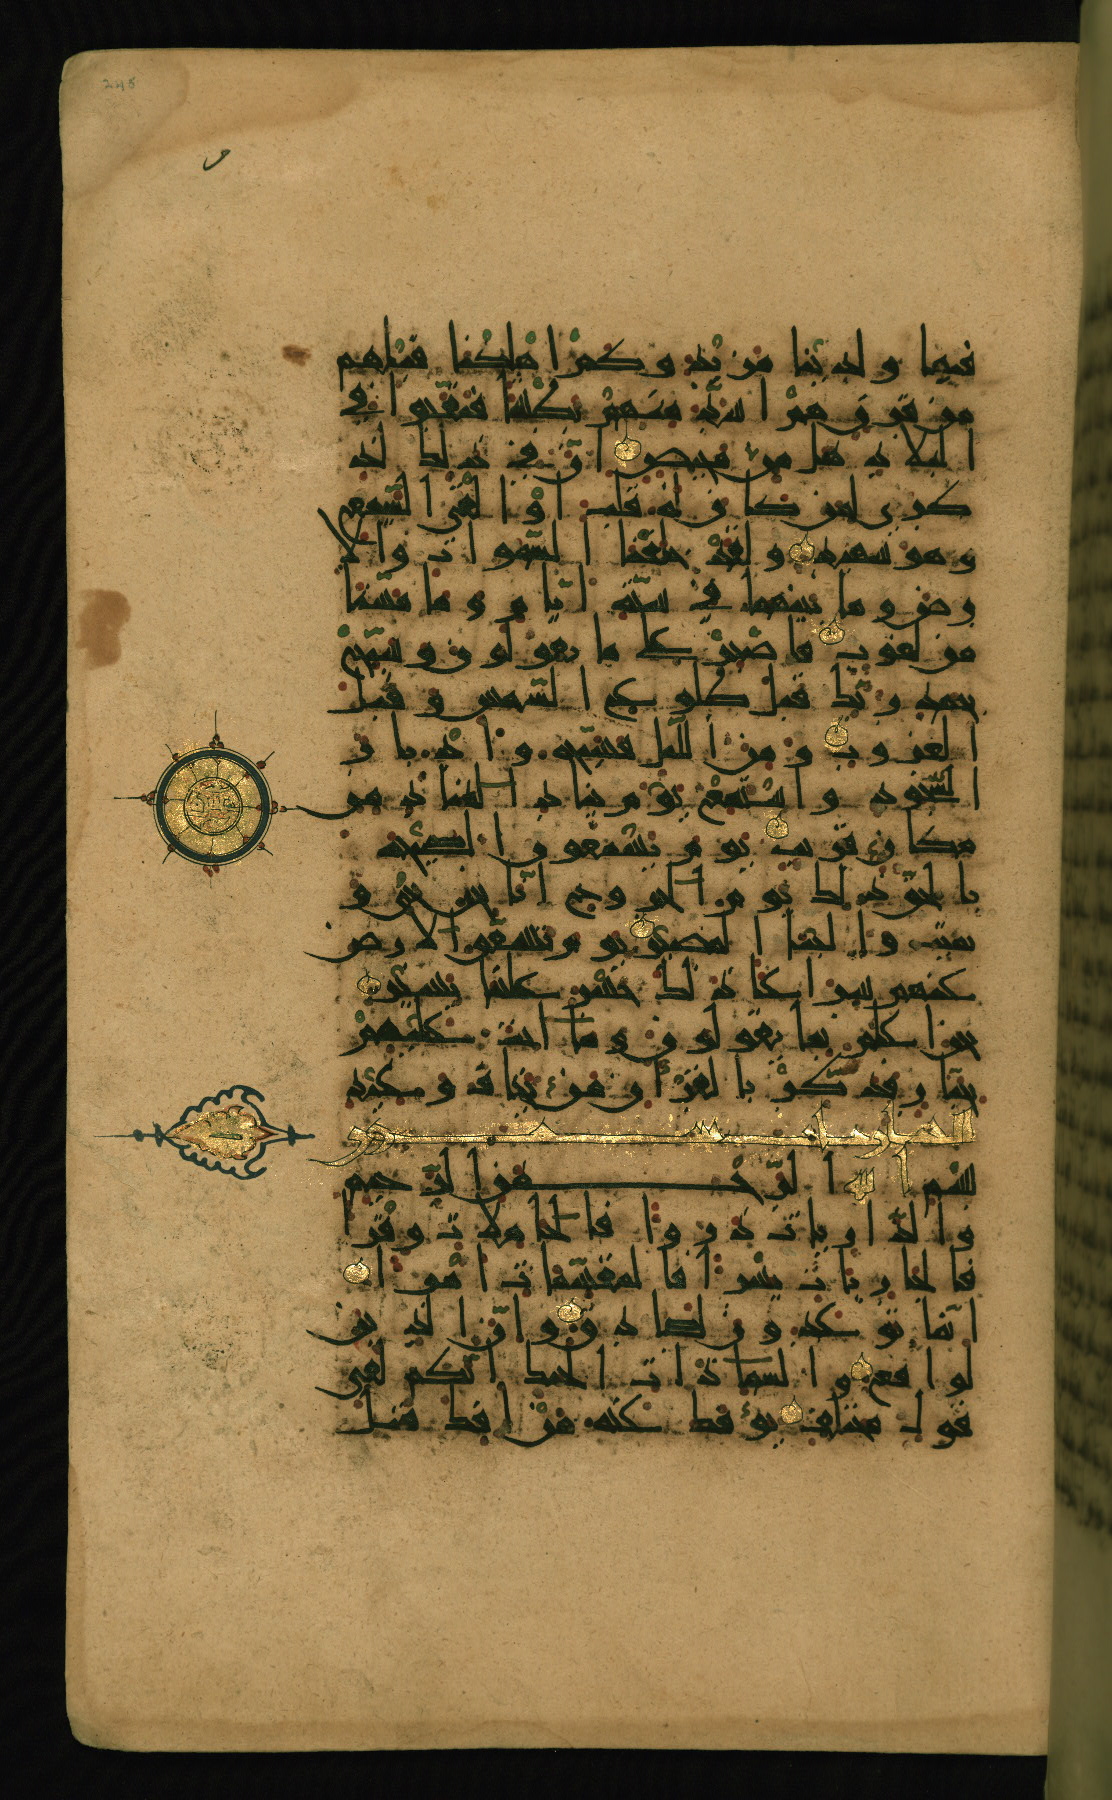 245
فيها ولدينا مزيد وكم اهلكنا قبلهم
من قرن هم اشد منهم بطشا فنقبوا في
البلاد هل من محيص ان في ذلك لذ
كرى لمن كان له قلب او القى السمع
وهو شهيد ولقد خلقنا السموات والا
رض وما بينهما في ستة ايام وما مسنا
من لغوب فاصبر على ما يقولون وسبح
بحمد ربك قبل طلوع الشمس وقبل
الغروب ومن الليل فسبحه وادبار
السجود واستمع يوم يناد المناد من
مكان قريب يوم يسمعون الصيحة
بالحق ذلك يوم الخروج انا نحن نحي و
نميت والينا المصير يوم تشقق الارض
عنهم سراعا ذلك حشر علينا يسير
نحن اعلم بما يقولون وما انت عليهم
بجبار فذكر بالقرآن من يخاف وعيد
الذاريات ستون
بسم الله الرحمن الرحيم
والذاريات ذروا فالحاملات وقرا
فالجاريات يسرا فالمقسمات امرا
انما توعدون لصادق وان الدين
لواقع والسماء ذات الحبك انكم لفي
قول مختلف يؤفك عنه من افك قتل